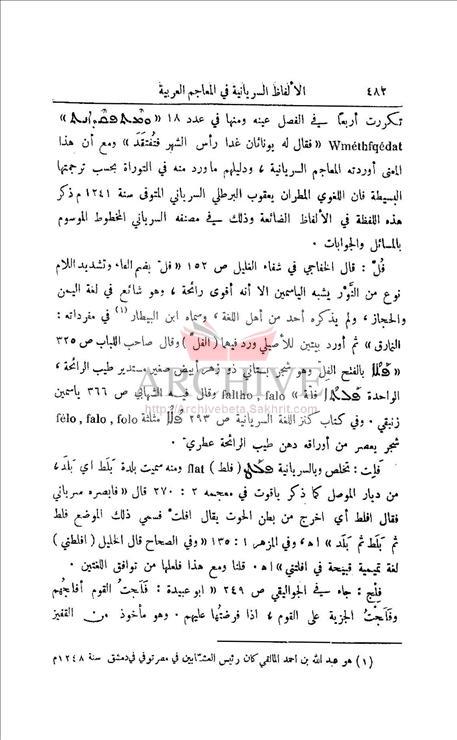 ٤٨٢ الألفاظ السريانية في المعاجم العربية
تكررت أربعا في الفصل عينه ومنها في عدد ١٨ «
Wméthfqédat » فقال له يوناثان غدا رأس الشهر فتُفتقَد » ومع أن هذا
المعنى أوردته المعاجم السريانية ، ودليلهم ماورد منه في التوراة بحسب ترجمتها
البسيطة فان اللغوي المطران يعقوب البرطلي السرياني المتوفى سنة ١٢٤١ م ذكر
هذه اللفظة في الألفاظ الضائعة وذلك في مصنفه السرياني المخطوط الموسوم
بالمسائل والجوابات .
فُلّ : قال الخفاجي في شفاء الغليل ص ١٥٢ « فلّ بضم الفاء وتشديد اللام
نوع من النَّوْر يشبه الياسمين الا أنه أقوى رائحة ، وهو شائع في لغة اليمن
والحجاز ، ولم يذكره أحد من أهل اللغة ، وسماه ابن البيطار (١) في مفرداته :
النمارق » ثم أورد بيتين للأصيلي ورد فيها ( الفلّ ) وقال صاحب اللباب ص ٣٢٥
« ܦܠܐ بالفتح الفِلّ وهو شجر بستاني ذو زهر أبيض صغير مستدير طيب الرائحة ،
الواحدة فلة » falo ، faltho وقال فيه الشهابي ص ٣٦٦ ياسمين
زنبقي . وفي كتاب كنز اللغة السريانية ص ٢٩٣ مثلثة félo, falo, folo
شجر يعصر من أوراقه دهن طيب الرائحة عطري .
فَلِت : تخلص وبالسريانية ( فلط ) flat ومنه سميت بلدة بَلَط اي بَلَد ،
من ديار الموصل كما ذكر ياقوت في معجمه ٢ : ٢٧٠ قال « فابصره سرياني
فقال افلط أي اخرج من بطن الحوت يقال افلت فسمي ذلك الموضع فلط
ثم بَلَط ثم بَلَد » اه ، وفي المزهر ١ : ١٣٥ « وفي الصحاح قال الخليل ( افلطني )
لغة تميمية قبيحة في افلتني » اه . قلنا ومع هذا فلعلها من توافق اللغتين .
فِلْج : جاء في الجواليقي ص ٢٤٩ « ابو عبيدة : فَلَجتُ القوم أفلِجُهم
وفَلَجْتُ الجزية على القوم ، اذا فرضتُها عليهم . وهو مأخوذ من القفيز
(١) هو عبد الله بن احمد المالقي كان رئيس العشابين في مصر توفي في دمشق سنة ١٢٤٨ م
ARCHIVE
http://archivebeta.Sakhrit.com